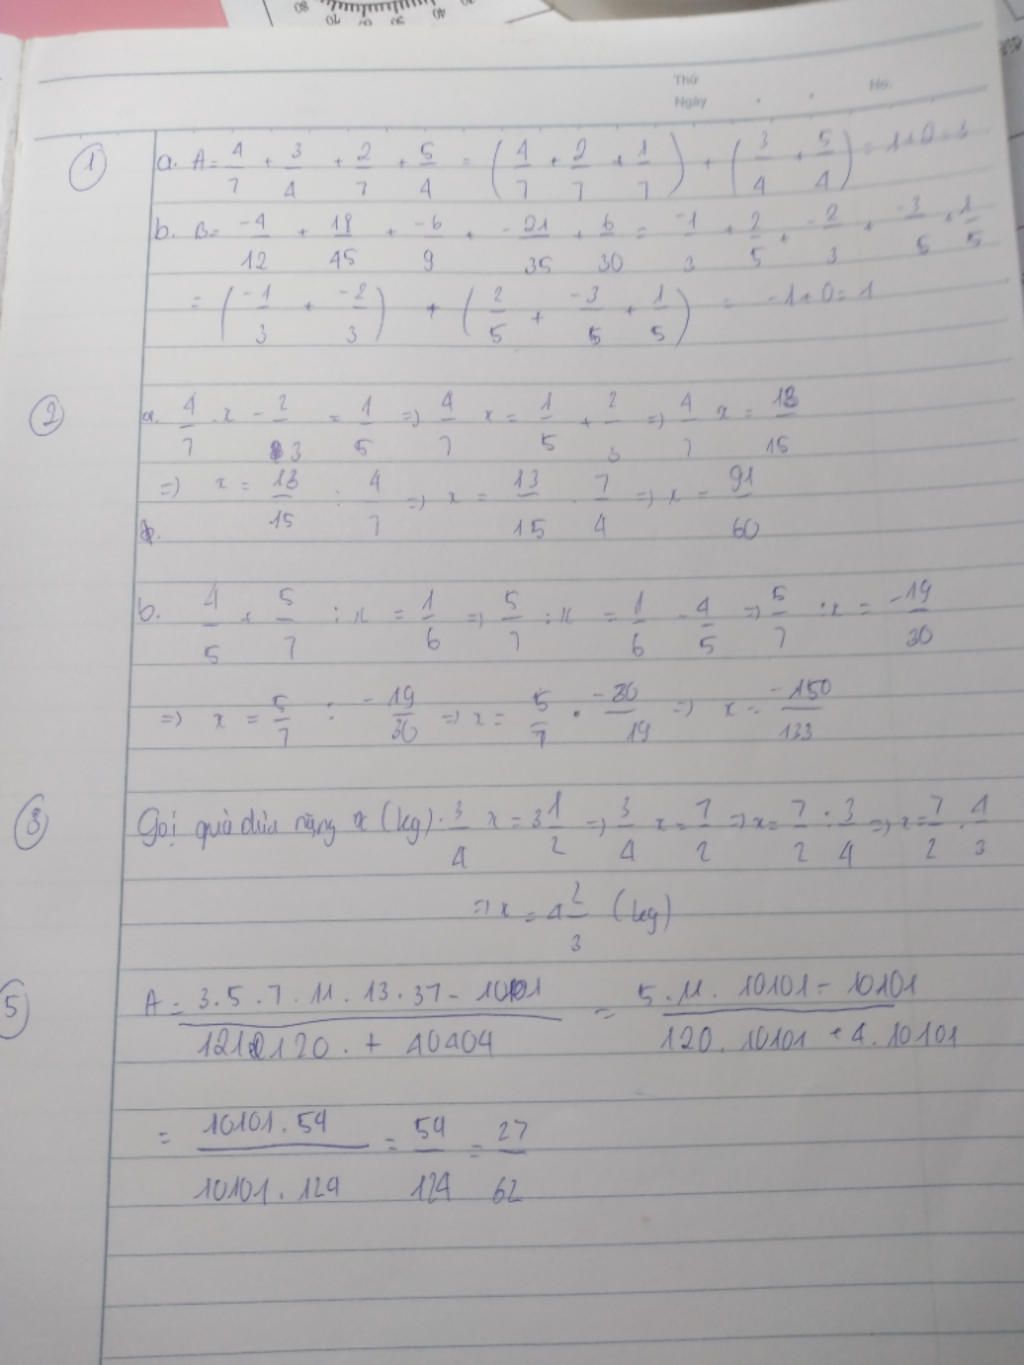 80 70 60 50 40
Thứ
Ngày . . No.
① a. A = 4/7 + 3/4 + 2/7 + 5/4 = (4/7 + 2/7 + 1/7) + (3/4 + 5/4) = 1+0=1
b. B = -4/12 + 18/45 + -6/9 + -21/35 + 6/30 = -1/3 + 2/5 + -2/3 + -3/5 + 1/5
= (-1/3 + -2/3) + (2/5 + -3/5 + 1/5) = -1+0=1
② a. 4/7 . x - 2/3 = 1/5 => 4/7 x = 1/5 + 2/3 => 4/7 x = 13/15
=> x = 13/15 : 4/7 => x = 13/15 . 7/4 => x = 91/60
b. 4/5 + 5/7 : x = 1/6 => 5/7 : x = 1/6 - 4/5 => 5/7 : x = -19/30
=> x = 5/7 : -19/30 => x = 5/7 . -30/19 => x = -150/133
③ Gọi quả dưa nặng x (kg). 3/4 x = 3 1/2 => 3/4 x = 7/2 => x = 7/2 : 3/4 => x = 7/2 . 4/3
=> x = 4 2/3 (kg)
⑤ A = 3.5.7.11.13.37 - 10101 / 1212120 . + 40404 = 5.11.10101 - 10101 / 120.10101 + 4.10101
= 10101.54 / 10101.124 = 54/124 = 27/62